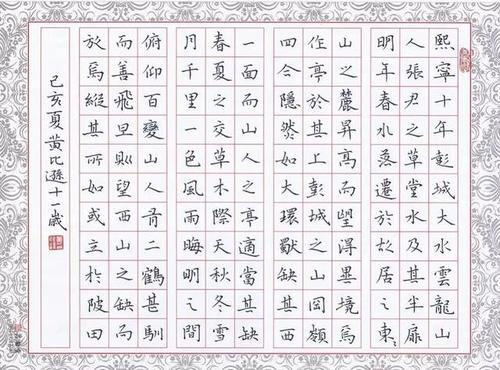 熙寧十年彭城大水雲龍山
人張君之草堂水及其半扉
明年春水落遷於故居之東
山之麓昇高而望得異境焉
作亭於其上彭城之山岡嶺
四合隱然如大環獨缺其西
一面而山人之亭適當其缺
春夏之交草木際天秋冬雪
月千里一色風雨晦明之間
俯仰百變山人有二鶴甚馴
而善飛旦則望西山之缺而
放焉縱其所如或立於陂田
己亥夏黃比遜十一歲